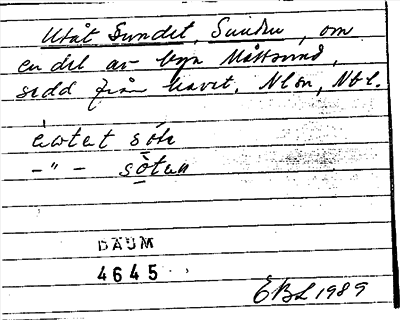 Utåt Sundet, Sunden, om
en del av byn Måttsund,
sedd från havet. Nlån, Nbt.
-"-
DAUM
4645
EBL 1989